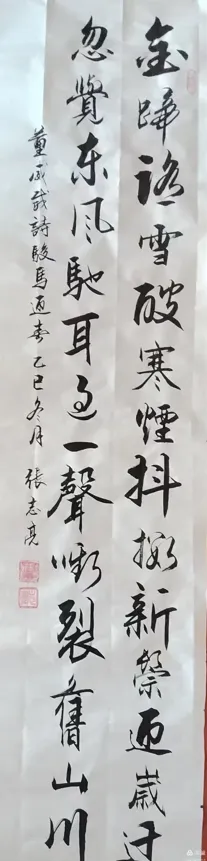 金蹄踏雪破寒煙抖擻新鬃迎歲迁
忽覺东风馳耳過一聲嘶裂舊山川
董詩駿馬迎春乙巳冬月 張志亮